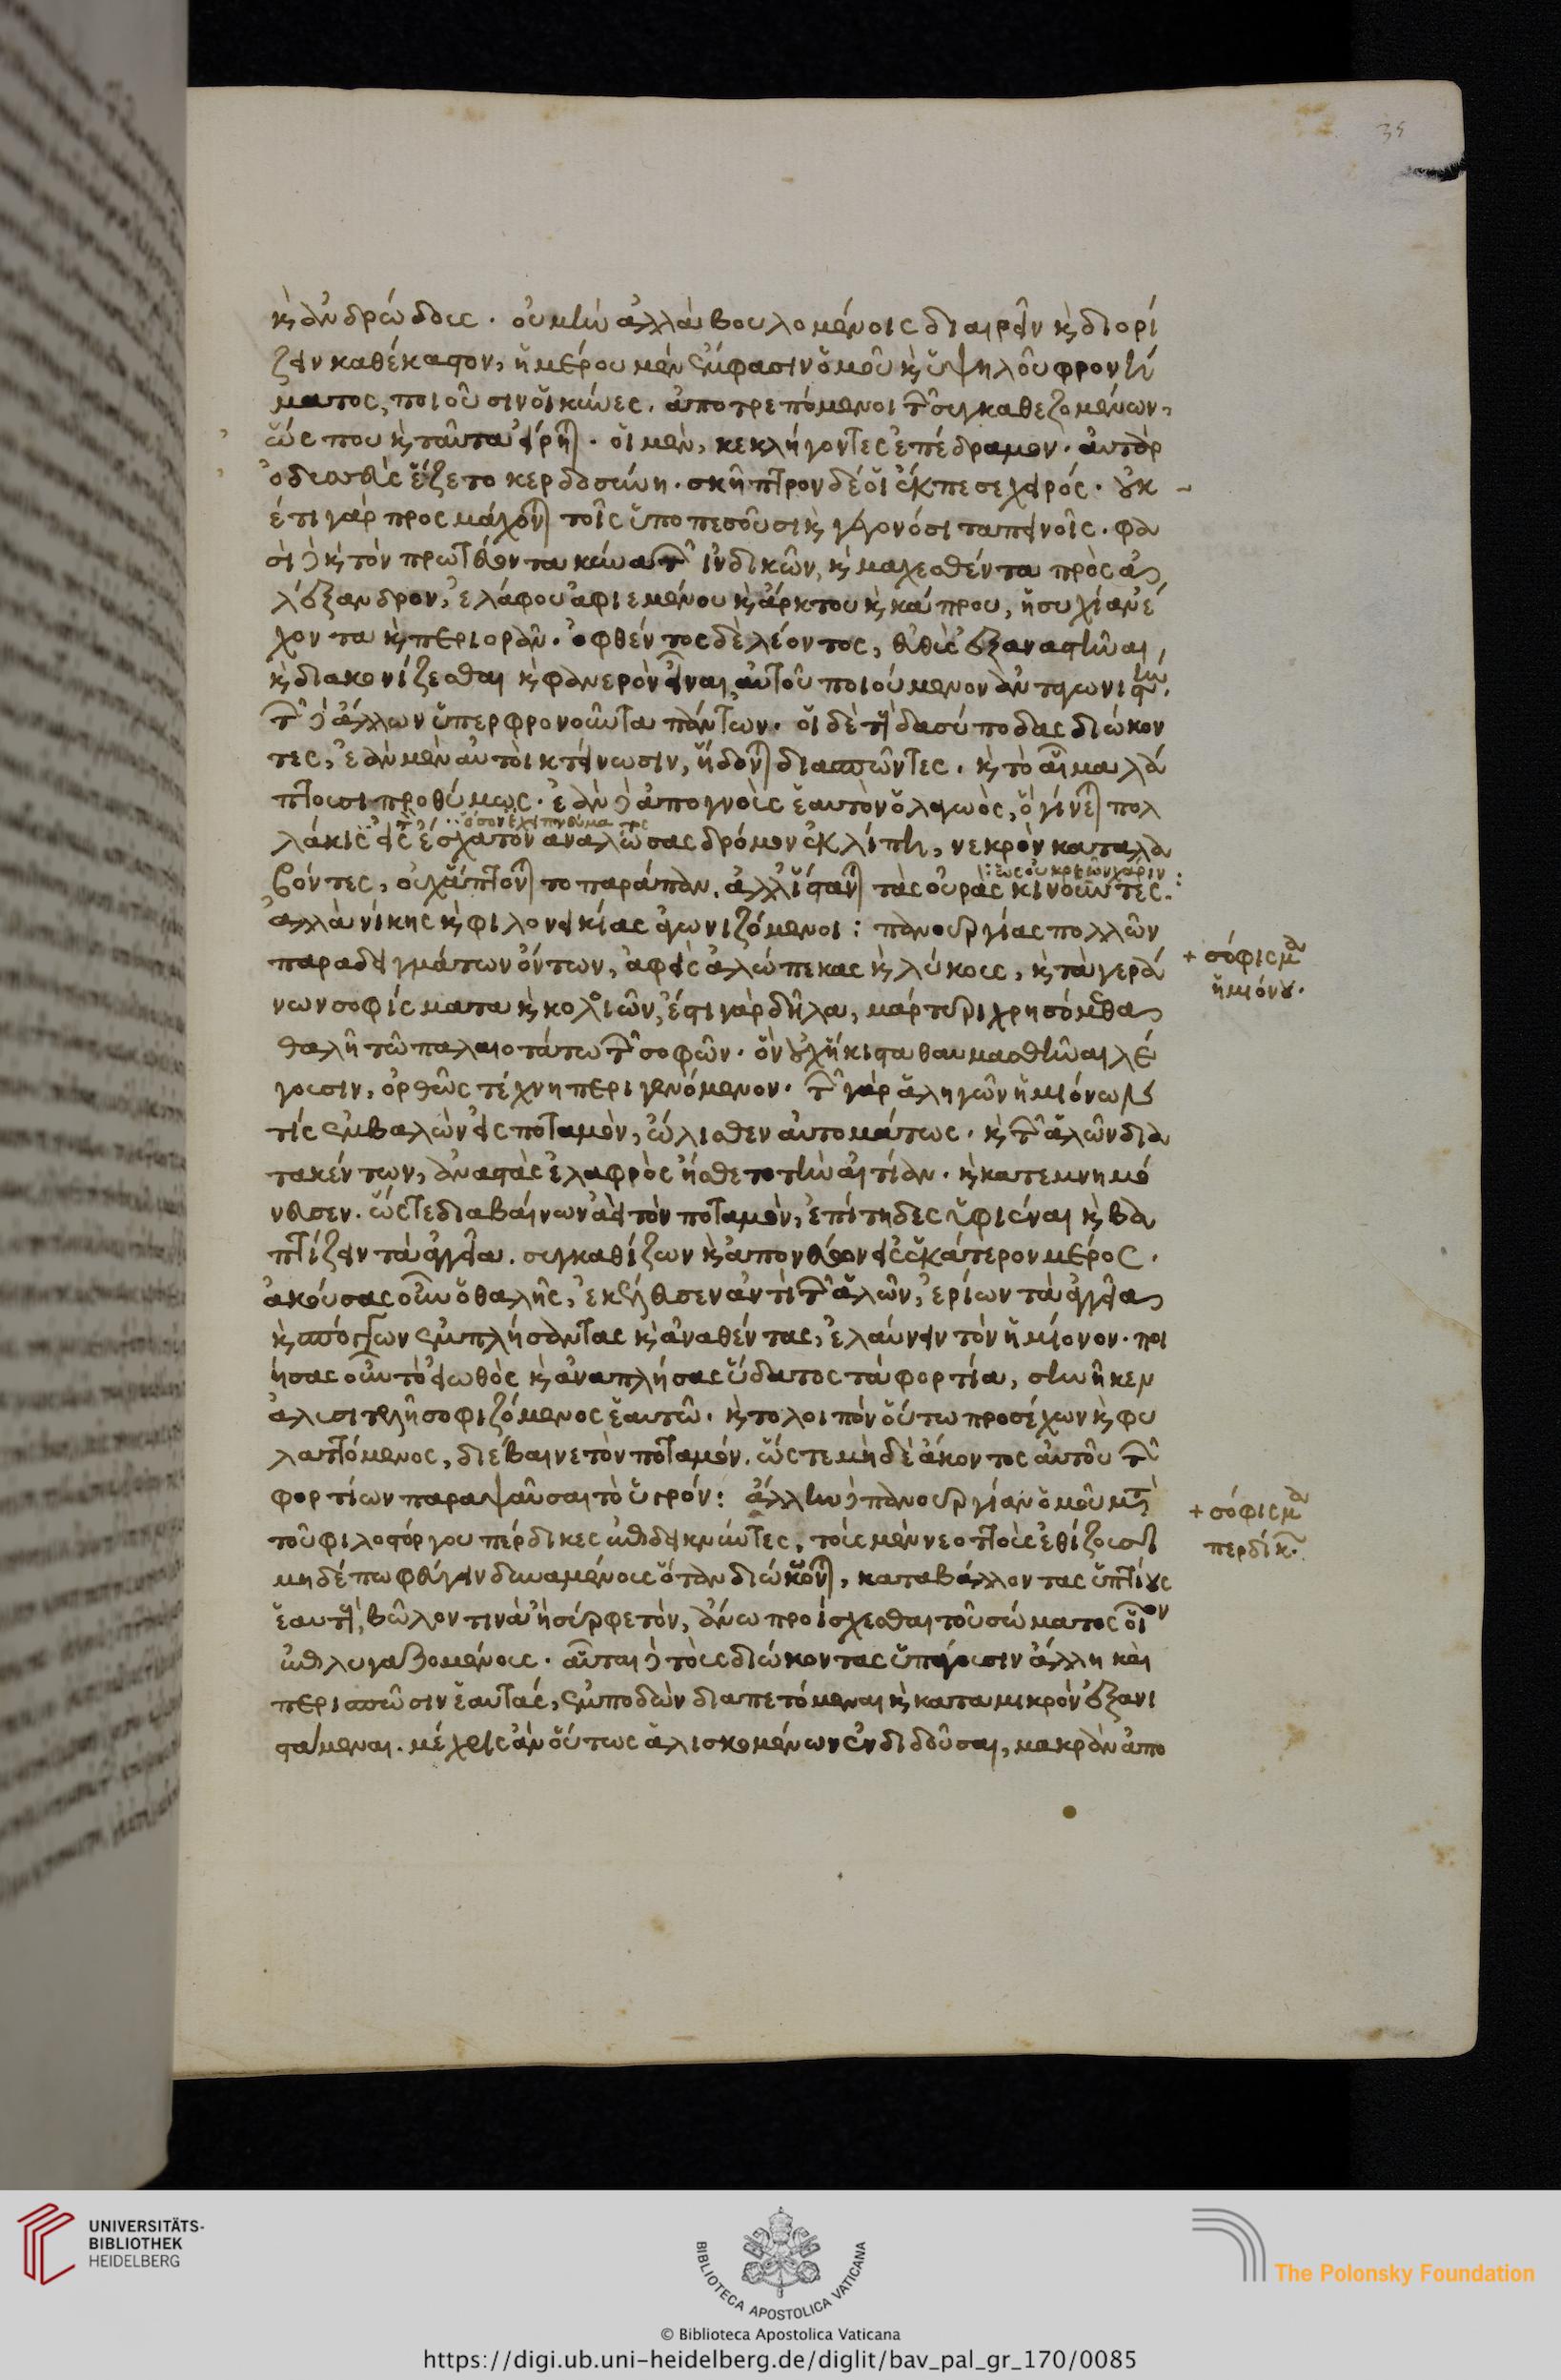 κ̀ ἀνδρώδους. οὐ μὴν ἀλλὰ βουλομένοις διαιρεῖν κ̀ διορί
ζειν καθέκαστον, ἡμέρου μὲν ἔμφασιν ὁμοῦ κ̀ ὑψηλοῦ φρονή
ματος, ποιοῦσιν οἱ κύνες. ἀποτρεπόμενοι τῶν συγκαθεζομένων,
ὥς που κ̀ ταῦτα εἴρηται. οἱ μὲν, κεκλήγοντες ἐπέδραμον. αὐτὰρ
ὀδυσσεὺς ἕζετο κερδοσύνη. σκῆπτρον δέ οἱ ἔκπεσε χειρός. οὐκ
έτι γὰρ προσμάχονται τοῖς ὑποπεσοῦσι κ̀ γεγονόσι ταπεινοῖς. φα
σὶ δὲ κ̀ τὸν πρωτεύοντα κύνα τῶν ἰνδικῶν, κ̀ μαχεσθέντα πρὸς ἀ
λέξανδρον, ἐλάφου ἀφιεμένου κ̀ ἄρκτου κ̀ κάπρου, ἡσυχίαν ἔ
χοντα κ̀ περιορᾶν. ὀφθέντος δὲ λέοντος, εὐθὺς ἐξαναστῆναι,
κ̀ διακονίζεσθαι κ̀ φανερὸν εἶναι αὐτοῦ ποιούμενον ἀνταγωνιστὴν,
τῶν δὲ ἄλλων ὑπερφρονοῦντα πάντων. οἱ δὲ τοὺς δασύποδας διώκον
τες, ἐὰν μὲν αὐτοὶ κτείνωσιν, ἥδονται διασπῶντες. κ̀ τὸ αἷμα λά
πτουσι προθύμως. ἐὰν δὲ ἀπογνοὺς ἑαυτὸν ὁ λαγωὸς, ὃ γίνεται πολ
ὅσον ἔχει πνεύματος
λάκις εἰς τὸ ἔσχατον αναλώσας δρόμον ἐκλίπῃ, νεκρὸν καταλα
: ἕως οὐ κρεῶν χάριν
βόντες, οὐχ ἅπτονται το παράπαν. ἀλλ' ἵστανται τὰς οὐρὰς κινοῦντες.
ἀλλὰ νίκης κ̀ φιλονεικίας ἀγωνιζόμενοι: πανουργίας πολλῶν
παραδειγμάτων ὄντων, ἀφεὶς ἀλώπεκας κ̀ λύκους, κ̀ τὰ γερά
νων σοφίσματα κ̀ κολοιῶν, ἔστι γὰρ δῆλα, μάρτυρι χρησόμεθα
θαλῆ τῶ παλαιοτάτω τῶν σοφῶν. ὃν οὐχ ἥκιστα θαυμασθῆναι λέ
γουσιν, ὀρθῶς τέχνη περιγενόμενον. τῶν γὰρ ἁληγῶν ἡμιόνων
τίς ἐμβαλὼν εἰς ποταμὸν, ὤλισθεν αὐτομάτως. κ̀ τῶν ἁλῶν δια
τακέντων, ἀναστὰς ἐλαφρὸς ᾔσθετο τὴν αἰτίαν. κ̀ κατεμνημό
νευσεν. ὥστε διαβαίνων ἀεὶ τὸν ποταμὸν, ἐπίτηδες ὑφιέναι κ̀ βα
πτίζειν τὰ ἀγγεῖα. συγκαθίζων κ̀ ἀπονεύων εἰς ἑκάτερον μέρος.
ἀκούσας οὖν ὁ θαλῆς, ἐκέλευσεν ἀντὶ τῶν ἁλῶν, ἐρίων τὰ ἀγγεῖα
κ̀ σπόγγων ἐμπλήσαντας κ̀ ἀναθέντας, ἐλαύνειν τὸν ἡμίονον. ποι
ήσας οὖν τὸ εἰωθὸς κ̀ ἀναπλήσας ὕδατος τὰ φορτία, συνῆκεν
ἀλυσιτελῆ σοφιζόμενος ἑαυτῶ. κ̀ τολοιπὸν οὕτω προσέχων κ̀ φυ
λαττόμενος, διέβαινε τὸν ποταμόν. ὥστε μηδὲ ἄκοντος αὐτοῦ τῶν
φορτίων παραψαῦσαι τὸ ὑγρόν: ἄλλην δὲ πανουργίαν ὁμοῦ μετὰ
τοῦ φιλοστόργου πέρδικες ἐπιδεικνύντες, τοὺς μὲν νεοττοὺς ἐθίζουσι
μηδέπω φεύγειν δυναμένους ὅταν διώκωνται, καταβάλλοντας ὑπτίους
ἑαυτοὺς, βῶλον τινὰ ἢ συρφετὸν, ἄνω προΐσχεσθαι τοῦ σώματος οἷον
ἐπηλυγαζομένους. αὗται δὲ τοὺς διώκοντας ὑπάγουσιν ἄλλη καὶ
περισπῶσιν ἑαυτὰς, ἐμποδὼν διαπετόμεναι κ̀ καταμικρὸν ἐξανι
στάμεναι. μέχρις ἂν οὕτως ἁλισκομένων ἐνδιδοῦσαι, μακρὰν ἀπο
+ σόφισμα
ἡμιόνου.
+ σόφισμα
περδίκων.
UNIVERSITÄTS-
BIBLIOTHEK
HEIDELBERG
BIBLIOTECA APOSTOLICA VATICANA
The Polonsky Foundation
© Biblioteca Apostolica Vaticana
https://digi.ub.uni-heidelberg.de/diglit/bav_pal_gr_170/0085